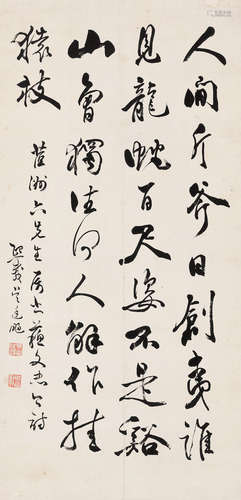 人間斤斧日創夷誰
見龍虵百尺姿不是谿
山曾獨往何人解作挂
猿枝
洲六先生屬書蘇文忠公詩
熙載吳廷颺